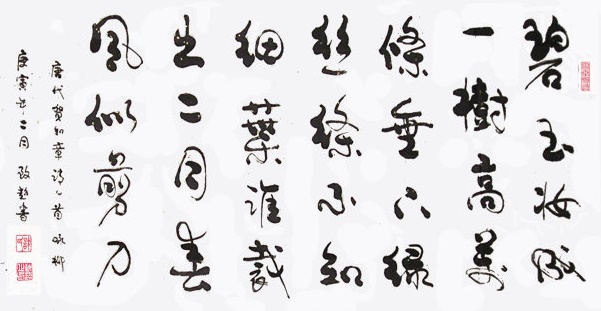 碧玉妝成
一樹高萬
條垂下綠
絲絛不知
細葉誰裁
出二月春
風似剪刀
唐代賀知章詩一首咏柳
庚寅年二月書